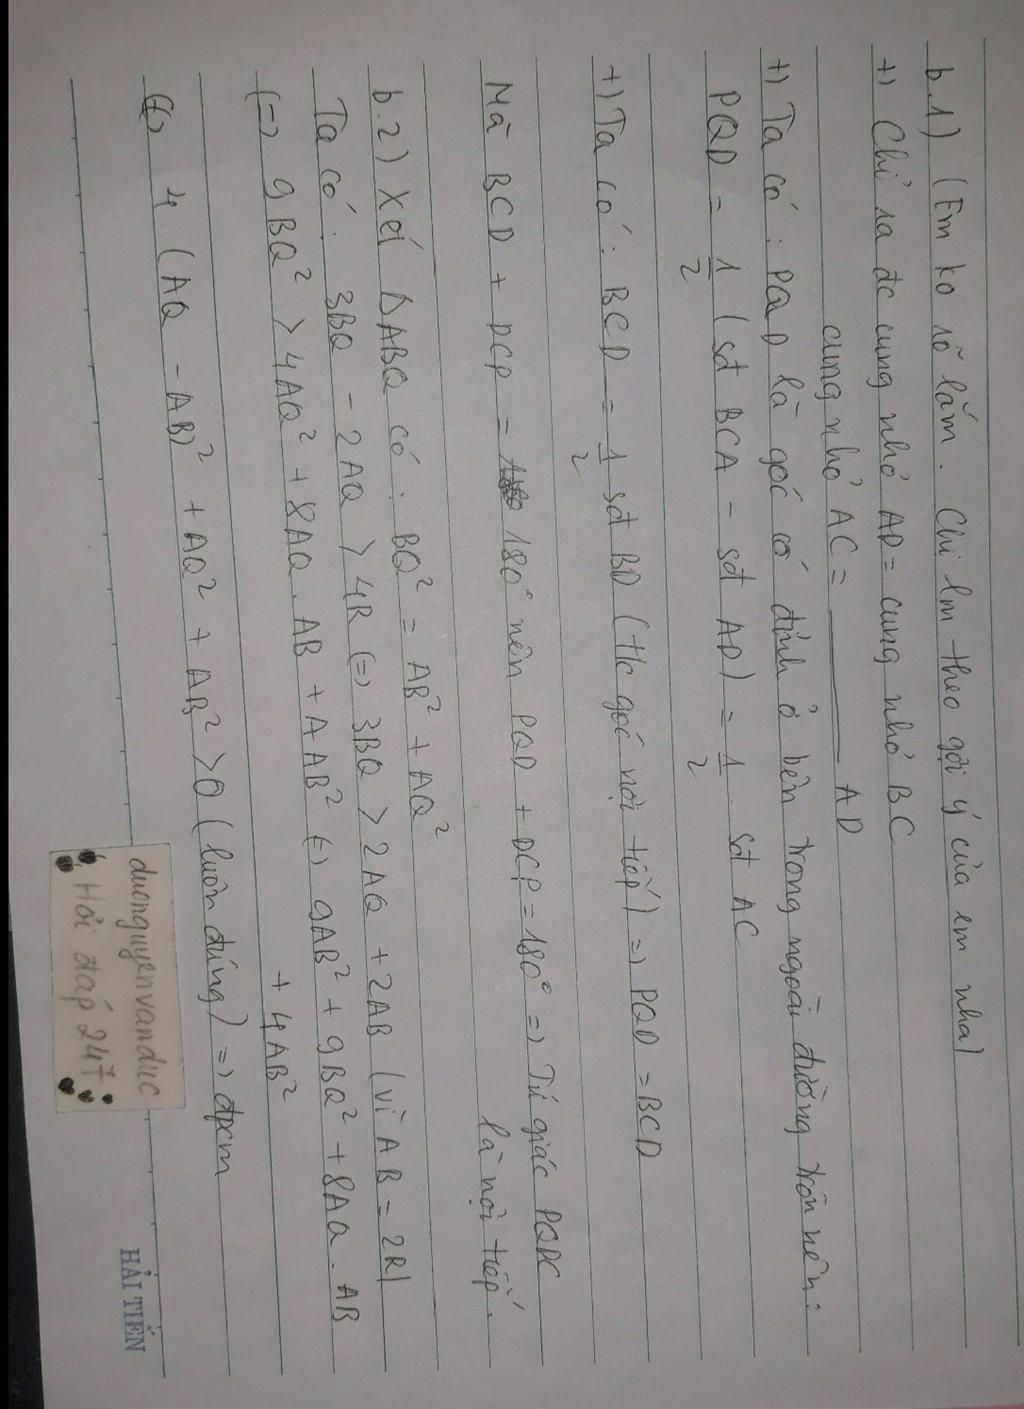 b.1) (Em ko rõ lắm. Chỉ lm theo gợi ý của em nha)
+) Chỉ ra đc cung nhỏ AD = cung nhỏ BC
cung nhỏ AC = ______ AD
+) Ta có: PQD là góc có đỉnh ở bên trong ngoài đường tròn nên:
PQD = 1/2 (sđ BCA - sđ AD) = 1/2 . sđ AC
+) Ta có: BCD = 1/2 sđ BD (t/c góc nội tiếp) => PQD = BCD
Mà BCD + DCP = 180° nên PQD + DCP = 180° => Tứ giác PQDC
là nội tiếp.
b.2) Xét ΔABQ có: BQ² = AB² + AQ²
Ta có: 3BQ - 2AQ > 4R (=) 3BQ > 2AQ + 2AB (vì AB = 2R)
(=) 9BQ² > 4AQ² + 8AQ.AB + 4AB² (=) 9AB² + 9BQ² + 8AQ.AB
+ 4AB²
(=) 4.(AQ - AB)² + AQ² + AB² > 0 (luôn đúng) => đpcm
duonguyenvanduc
Hỏi đáp 247
HẢI TIẾN